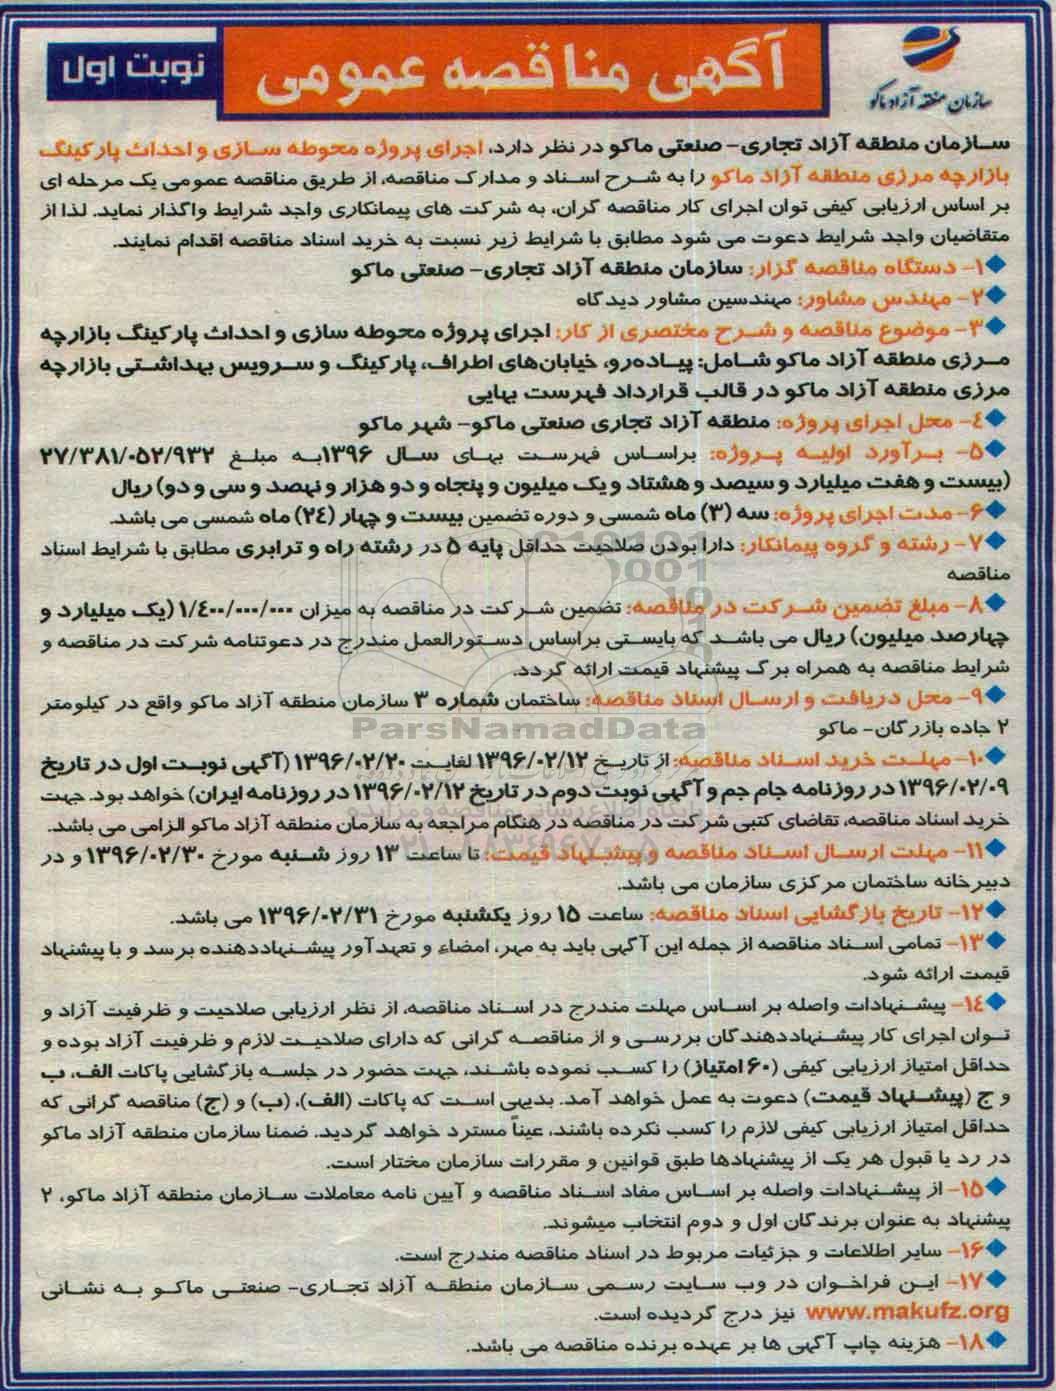 سازمان منطقه آزاد ماکو
آگهی مناقصه عمومی
نوبت اول
سازمان منطقه آزاد تجاری- صنعتی ماکو در نظر دارد، اجرای پروژه محوطه سازی و احداث پارکینگ
بازارچه مرزی منطقه آزاد ماکو را به شرح اسناد و مدارک مناقصه، از طریق مناقصه عمومی یک مرحله ای
بر اساس ارزیابی کیفی توان اجرای کار مناقصه گران، به شرکت های پیمانکاری واجد شرایط واگذار نماید. لذا از
متقاضیان واجد شرایط دعوت می شود مطابق با شرایط زیر نسبت به خرید اسناد مناقصه اقدام نمایند.
◆۱- دستگاه مناقصه گزار: سازمان منطقه آزاد تجاری- صنعتی ماکو
◆۲- مهندس مشاور: مهندسین مشاور دیدگاه
◆۳- موضوع مناقصه و شرح مختصری از کار: اجرای پروژه محوطه سازی و احداث پارکینگ بازارچه
مرزی منطقه آزاد ماکو شامل: پیاده‌رو، خیابان‌های اطراف، پارکینگ و سرویس بهداشتی بازارچه
مرزی منطقه آزاد ماکو در قالب قرارداد فهرست بهایی
◆۴- محل اجرای پروژه: منطقه آزاد تجاری صنعتی ماکو- شهر ماکو
◆۵- برآورد اولیه پروژه: براساس فهرست بهای سال ۱۳۹۶به مبلغ ۲۷/۳۸۱/۰۵۲/۹۳۲
(بیست و هفت میلیارد و سیصد و هشتاد و یک میلیون و پنجاه و دو هزار و نهصد و سی و دو) ریال
◆۶- مدت اجرای پروژه: سه (۳) ماه شمسی و دوره تضمین بیست و چهار (۲۴) ماه شمسی می باشد.
◆۷- رشته و گروه پیمانکار: دارا بودن صلاحیت حداقل پایه ۵ در رشته راه و ترابری مطابق با شرایط اسناد
مناقصه
◆۸- مبلغ تضمین شرکت در مناقصه: تضمین شرکت در مناقصه به میزان ۱/۴۰۰/۰۰۰/۰۰۰ (یک میلیارد و
چهارصد میلیون) ریال می باشد که بایستی براساس دستورالعمل مندرج در دعوتنامه شرکت در مناقصه و
شرایط مناقصه به همراه برگ پیشنهاد قیمت ارائه گردد.
◆۹- محل دریافت و ارسال اسناد مناقصه: ساختمان شماره ۳ سازمان منطقه آزاد ماکو واقع در کیلومتر
۲ جاده بازرگان- ماکو
ParsNamadData
◆۱۰- مهلت خرید اسناد مناقصه: از تاریخ ۱۳۹۶/۰۲/۱۲ لغایت ۱۳۹۶/۰۲/۲۰ (آگهی نوبت اول در تاریخ
۱۳۹۶/۰۲/۰۹ در روزنامه جام جم و آگهی نوبت دوم در تاریخ ۱۳۹۶/۰۲/۱۲ در روزنامه ایران) خواهد بود. جهت
خرید اسناد مناقصه، تقاضای کتبی شرکت در مناقصه در هنگام مراجعه به سازمان منطقه آزاد ماکو الزامی می باشد.
◆۱۱- مهلت ارسال اسناد مناقصه و پیشنهاد قیمت: تا ساعت ۱۳ روز شنبه مورخ ۱۳۹۶/۰۲/۳۰ و در
دبیرخانه ساختمان مرکزی سازمان می باشد.
◆۱۲- تاریخ بازگشایی اسناد مناقصه: ساعت ۱۵ روز یکشنبه مورخ ۱۳۹۶/۰۲/۳۱ می باشد.
◆۱۳- تمامی اسناد مناقصه از جمله این آگهی باید به مهر، امضاء و تعهدآور پیشنهاددهنده برسد و با پیشنهاد
قیمت ارائه شود.
◆۱۴- پیشنهادات واصله بر اساس مهلت مندرج در اسناد مناقصه، از نظر ارزیابی صلاحیت و ظرفیت آزاد و
توان اجرای کار پیشنهاددهندگان بررسی و از مناقصه گرانی که دارای صلاحیت لازم و ظرفیت آزاد بوده و
حداقل امتیاز ارزیابی کیفی (۶۰ امتیاز) را کسب نموده باشند، جهت حضور در جلسه بازگشایی پاکات الف، ب
و ج (پیشنهاد قیمت) دعوت به عمل خواهد آمد. بدیهی است که پاکات (الف)، (ب) و (ج) مناقصه گرانی که
حداقل امتیاز ارزیابی کیفی لازم را کسب نکرده باشند، عیناً مسترد خواهد گردید. ضمنا سازمان منطقه آزاد ماکو
در رد یا قبول هر یک از پیشنهادها طبق قوانین و مقررات سازمان مختار است.
◆۱۵- از پیشنهادات واصله بر اساس مفاد اسناد مناقصه و آیین نامه معاملات سازمان منطقه آزاد ماکو، ۲
پیشنهاد به عنوان برندگان اول و دوم انتخاب میشوند.
◆۱۶- سایر اطلاعات و جزئیات مربوط در اسناد مناقصه مندرج است.
◆۱۷- این فراخوان در وب سایت رسمی سازمان منطقه آزاد تجاری- صنعتی ماکو به نشانی
www.makufz.org نیز درج گردیده است.
◆۱۸- هزینه چاپ آگهی ها بر عهده برنده مناقصه می باشد.